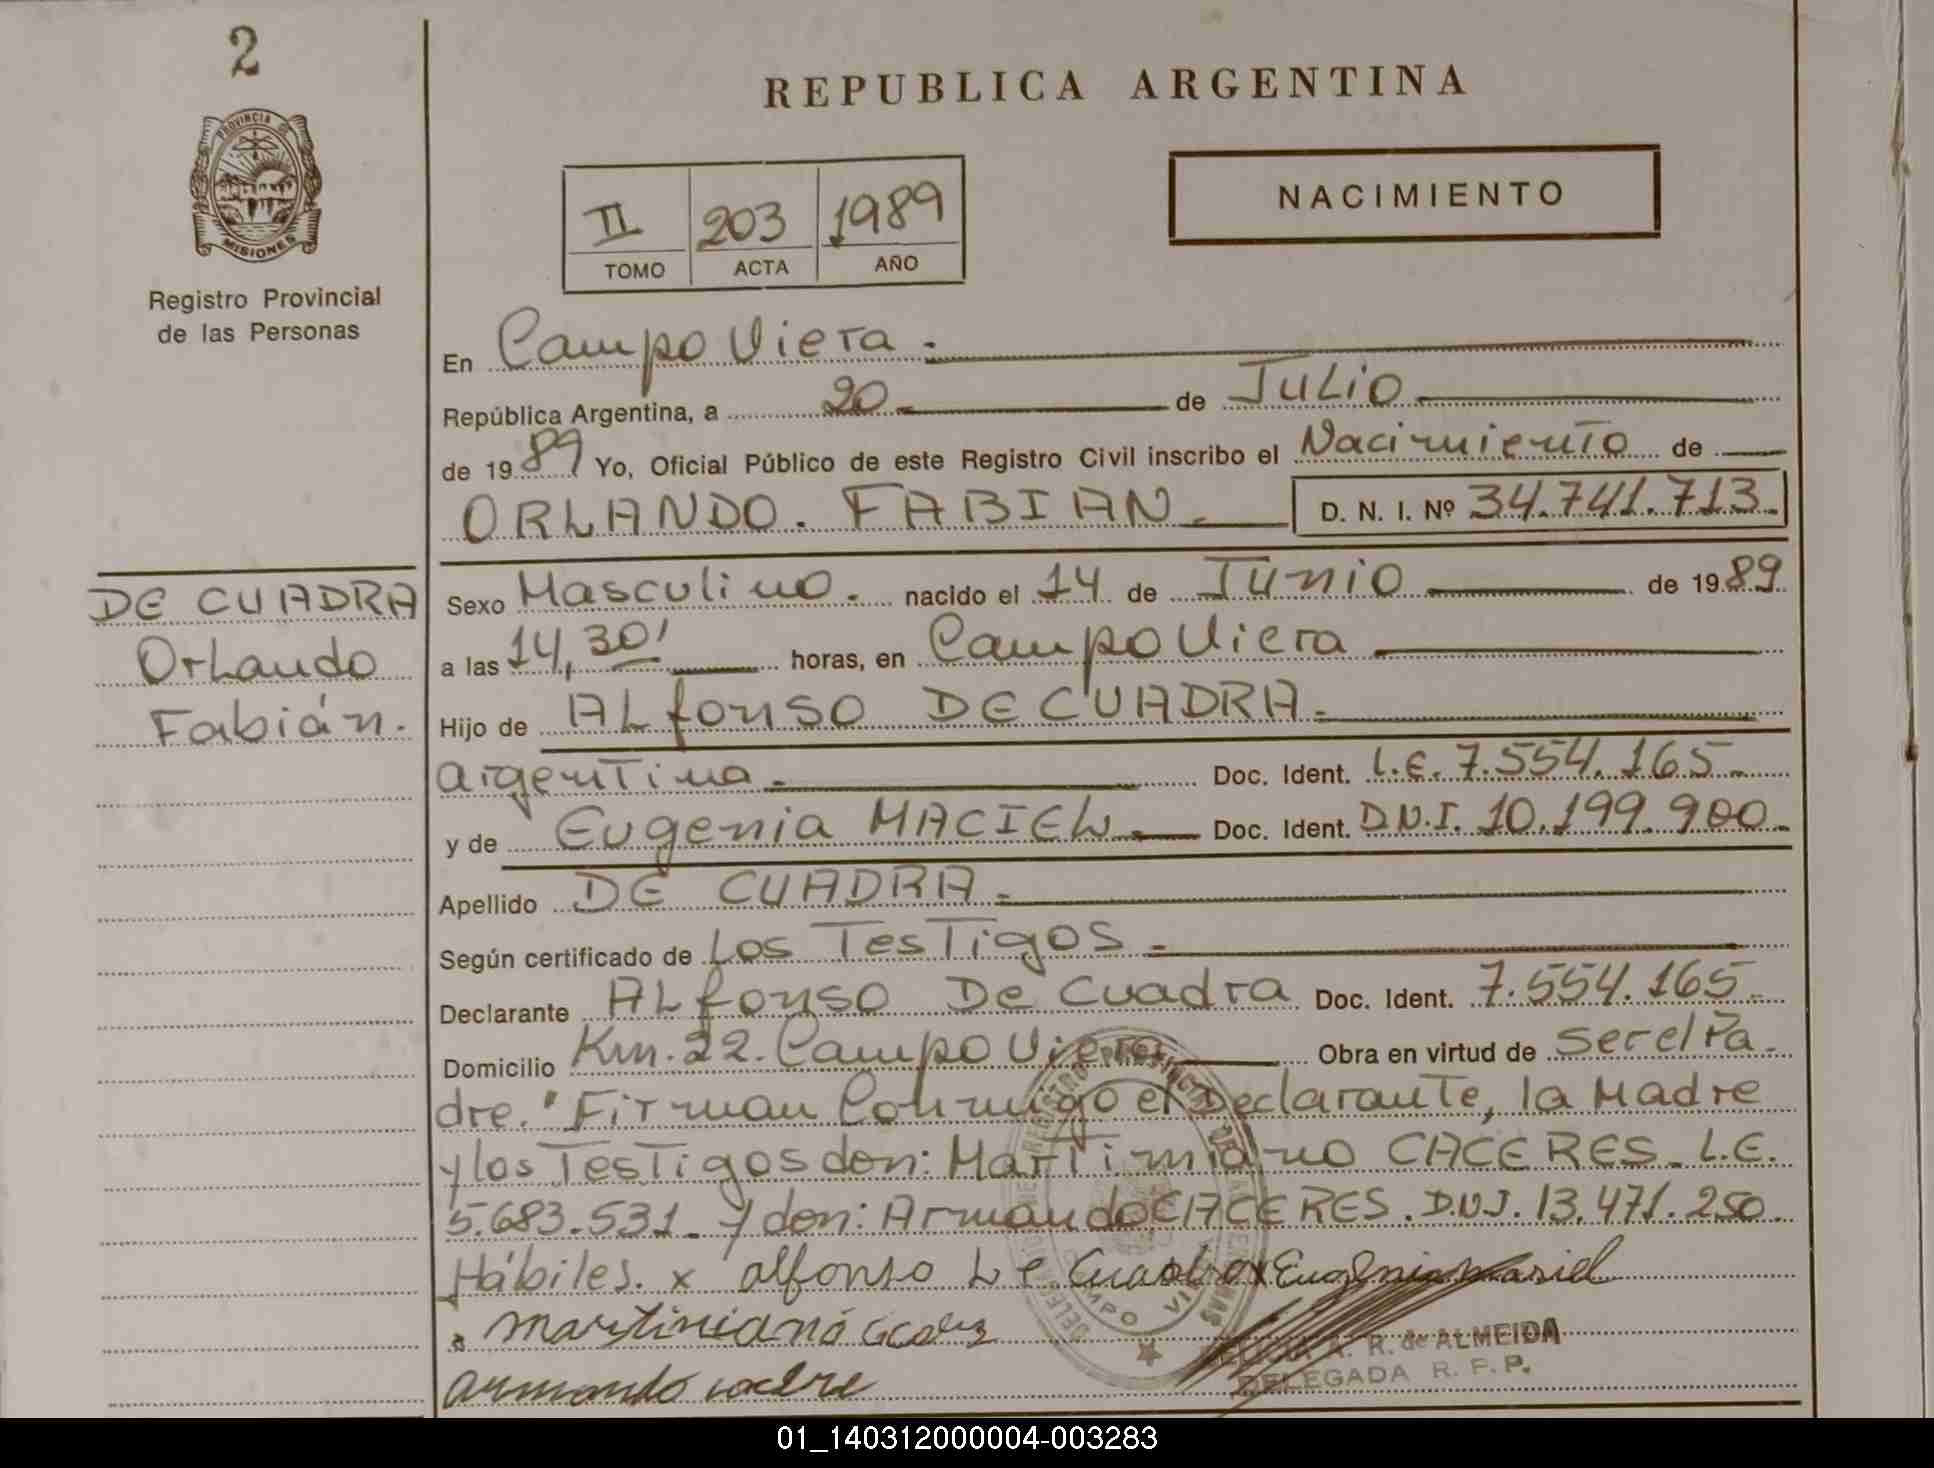 2
PROVINCIA DE
MISIONES
Registro Provincial
de las Personas
DE CUADRA
Orlando
Fabián.
REPUBLICA ARGENTINA
NACIMIENTO
II 203 1989
TOMO ACTA AÑO
En Campo Viera.
República Argentina, a 20 de Julio
de 1989 Yo, Oficial Público de este Registro Civil inscribo el Nacimiento de
ORLANDO. FABIAN. D. N. I. Nº 34.741.713.
Sexo Masculino. nacido el 14 de Junio de 1989
a las 14,30' horas, en Campo Viera
Hijo de ALfonso DE CUADRA.
argentina. Doc. Ident. L.E. 7.554.165
y de Eugenia MACIEL Doc. Ident. D.N.I. 10.199.900
Apellido DE CUADRA.
Según certificado de Los Testigos
Declarante ALfonso De Cuadra Doc. Ident. 7.554.165
Domicilio Km. 22. Campo Viera Obra en virtud de ser el Pa
dre. Firman Conmigo el Declarante, la Madre
y los Testigos don: Martimiano CACERES. L.E.
5.683.531. y don: Armando CACERES. D.N.I. 13.471.250
Hábiles. x alfonso De Cuadra x Eugenia maciel
martiniano
armando
R. de ALMEIDA
DELEGADA R. P. P.
01_140312000004-003283